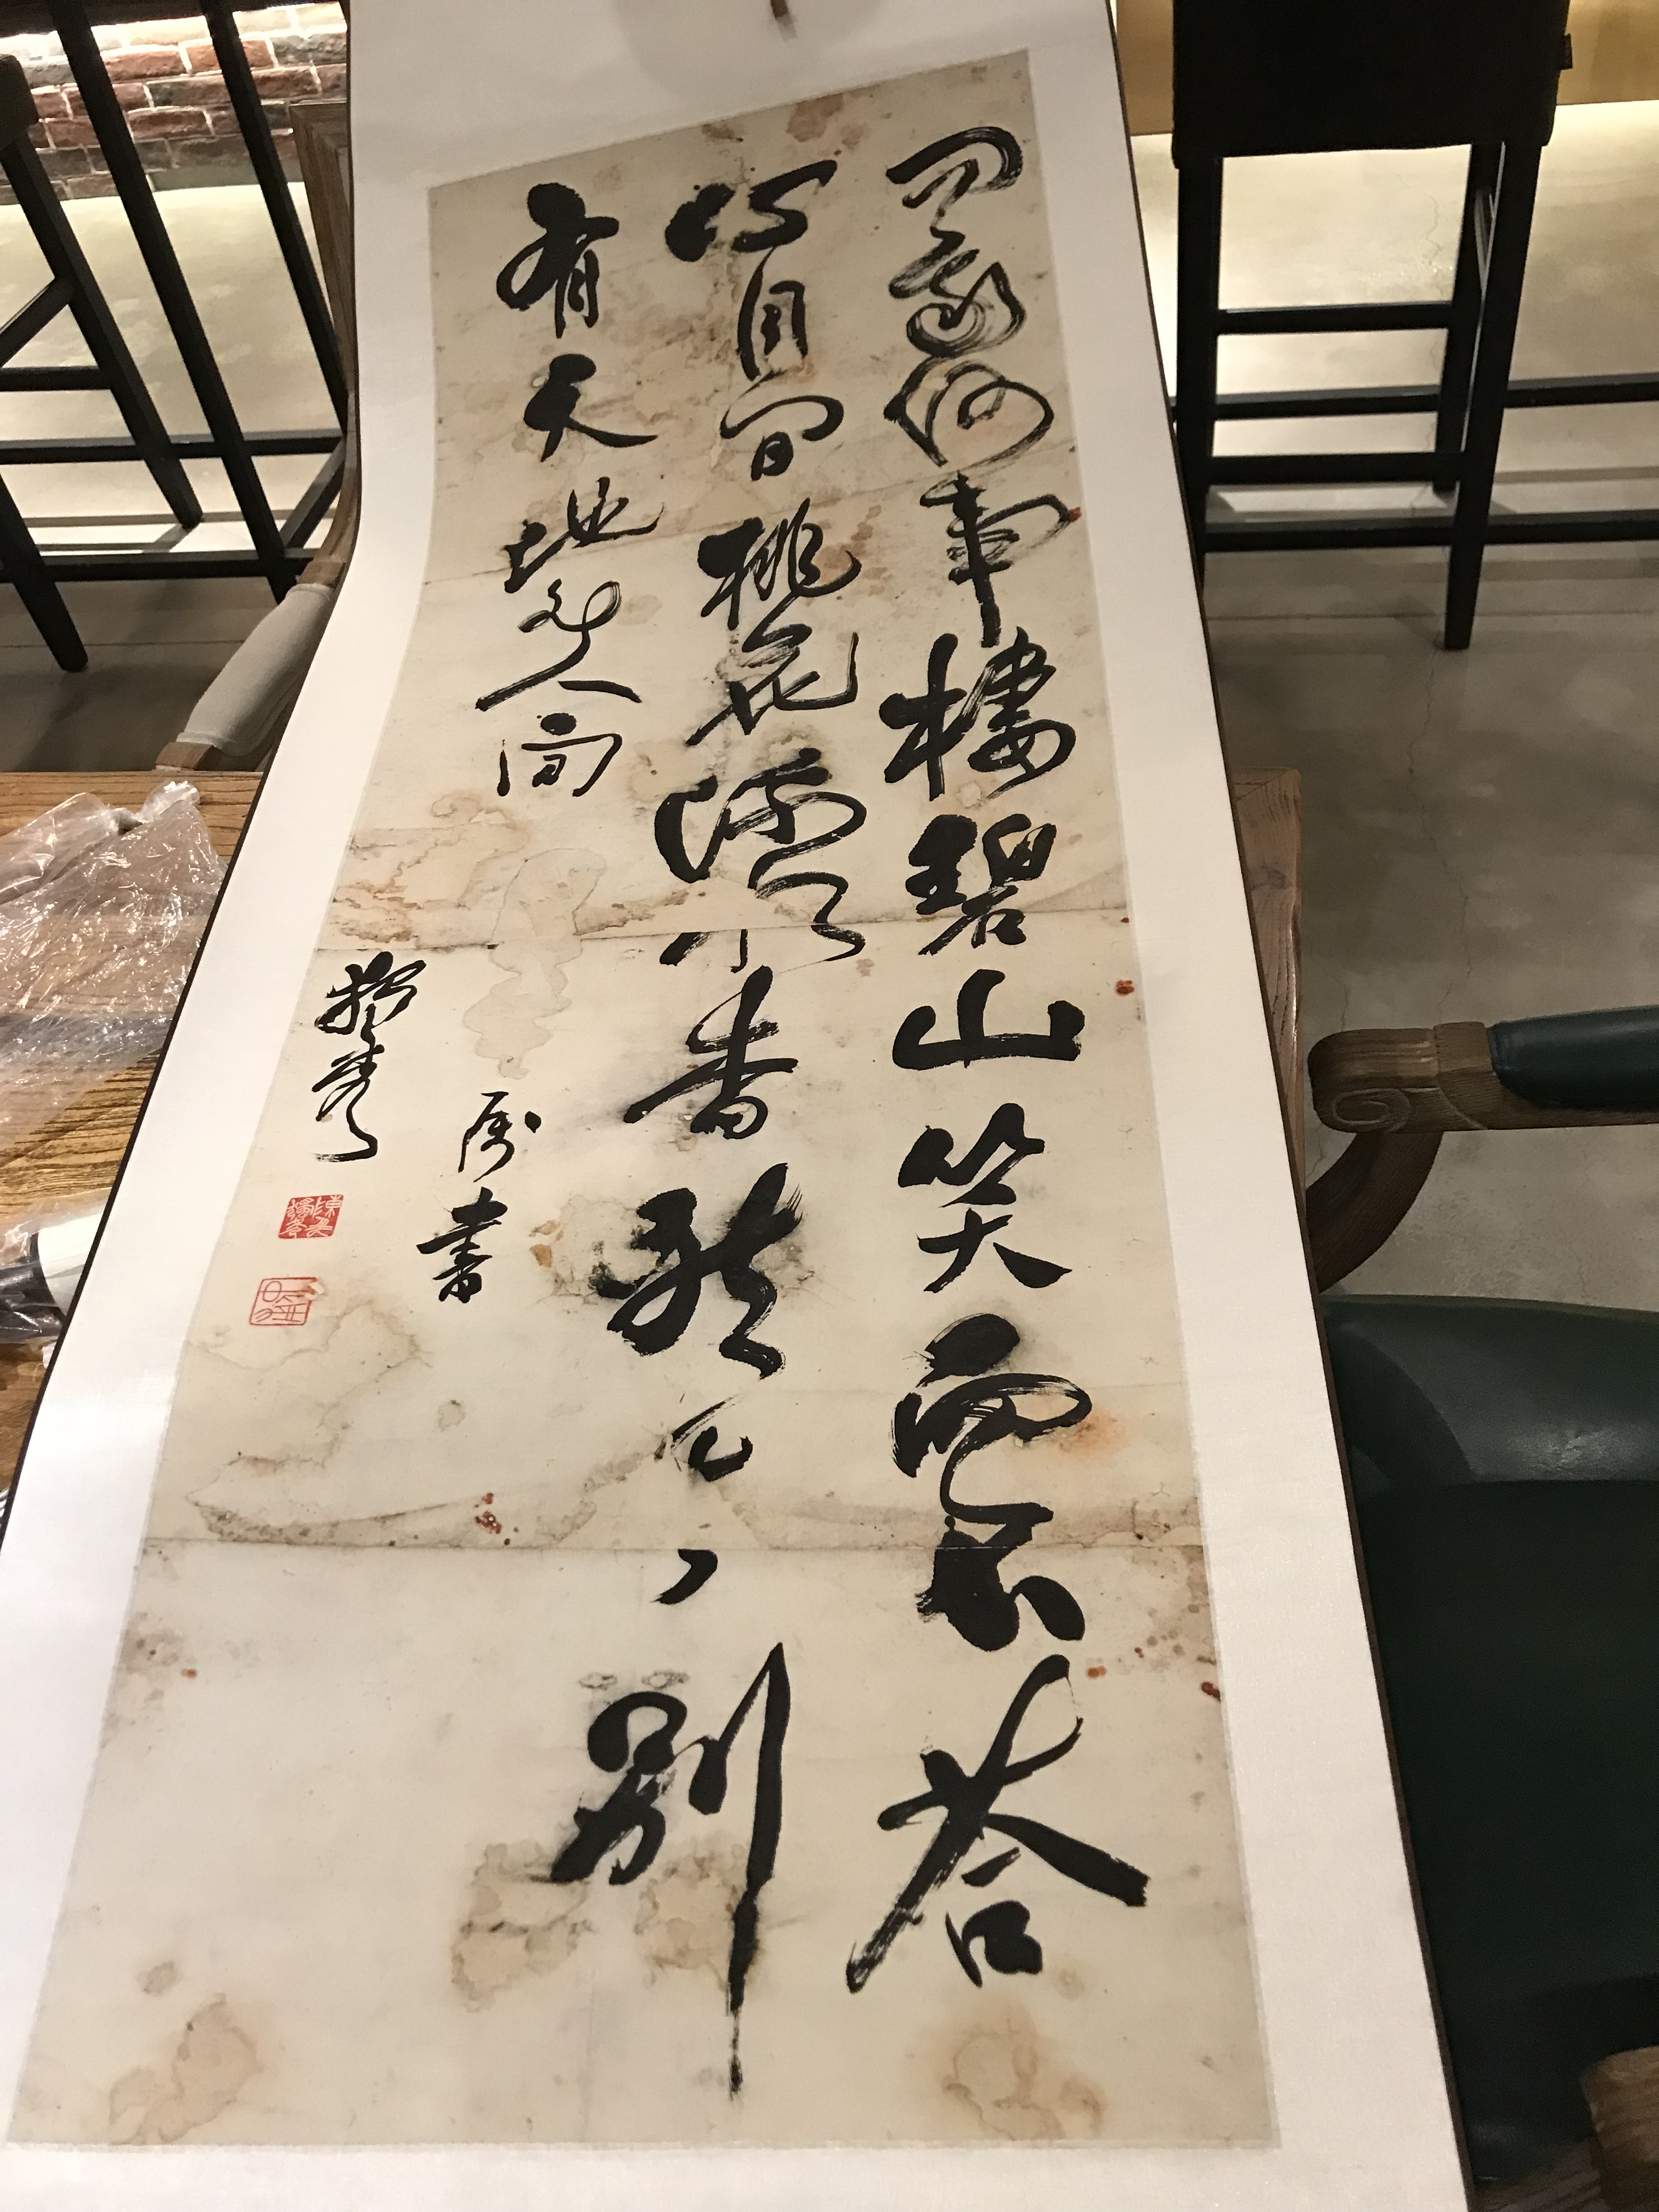 問余何事棲碧山笑而不答
心自間桃花流水杳然去別
有天地非人間
書